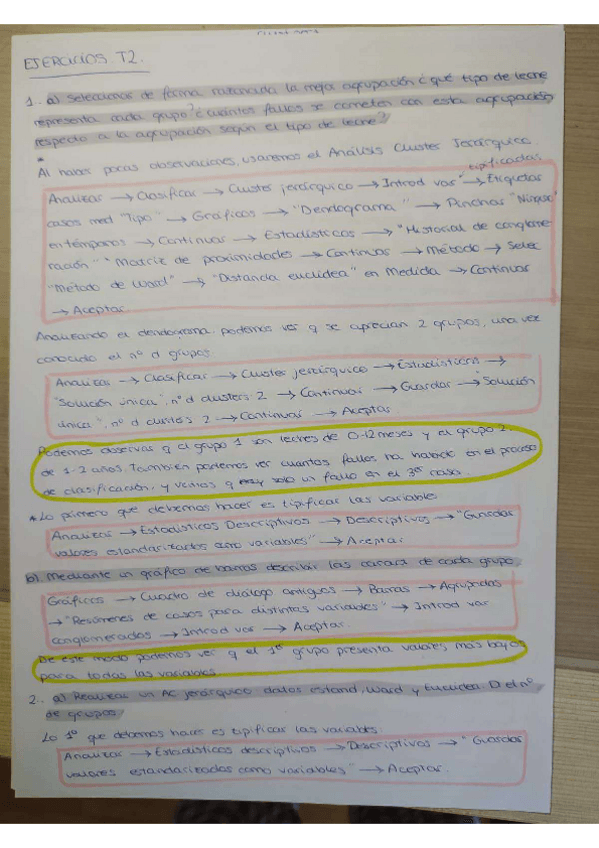 EJERCICIOS T2.
1. a) Seleccionar de forma razonada la mejor agrupación ¿qué tipo de leche
representa cada grupo? ¿cuántos fallos se cometen con esta agrupación
respecto a la agrupación según el tipo de leche?
*
Al haber pocas observaciones, usaremos el Análisis Cluster Jerárquico
tipificadas.
Analizar → Clasificar → Cluster jerárquico → Introd var → Etiquetar
casos med "Tipo" → Gráficos → "Dendograma" → Pinchar "Ninguno"
en témpanos → Continuar → Estadísticos → "Historial de conglome
ración" "Matriz de proximidades → Continuar → Método → Selec
"Método de Ward" → "Distancia euclidea" en Medida → Continuar
→ Aceptar
Analizando el dendograma podemos ver q se aprecian 2 grupos, una vez
conocido el nº d grupos:
Analizar → Clasificar → Cluster jerárquico → Estadísticos →
"Solución única", nº d clusters: 2 → Continuar → Guardar → "Solución
única", nº d clusters 2 → Continuar → Aceptar
Podemos observar q el grupo 1 son leches de 0-12 meses y el grupo 2
de 1-3 años. También podemos ver cuantos fallos ha habido en el proceso
de clasificación, y vemos q hay solo un fallo en el 3er caso.
* Lo primero que debemos hacer es tipificar las variables
Analizar → Estadísticos Descriptivos → Descriptivos → "Guardar
valores estandarizados como variables" → Aceptar
b) Mediante un gráfico de barras describir las caract de cada grupo
Gráficos → Cuadro de diálogo antiguos → Barras → Agrupadas
→ "Resúmenes de casos para distintas variables" → Introd var
conglomerados → Introd var → Aceptar.
De este modo podemos ver q el 1er grupo presenta valores más bajos
para todas las variables.
2. a) Realizar un AC jerárquico datos estand, Ward y Euclidea. D el nº
de grupos.
Lo 1º que debemos hacer es tipificar las variables:
Analizar → Estadísticos descriptivos → Descriptivos → "Guardar
valores estandarizados como variables" → Aceptar.